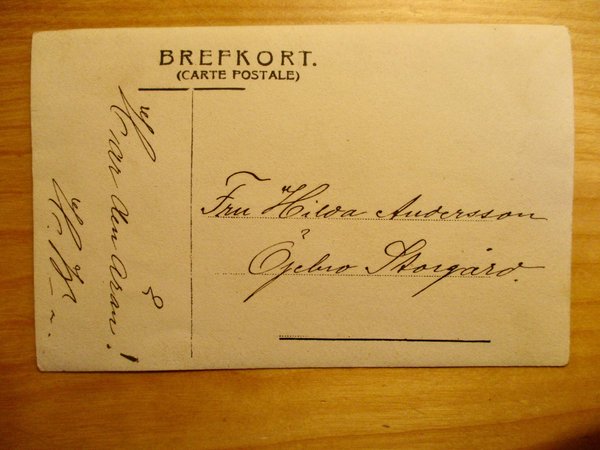 BREFKORT.
(CARTE POSTALE)
Har den äran!
Fru Hilda Andersson
Öjebro Storgård.